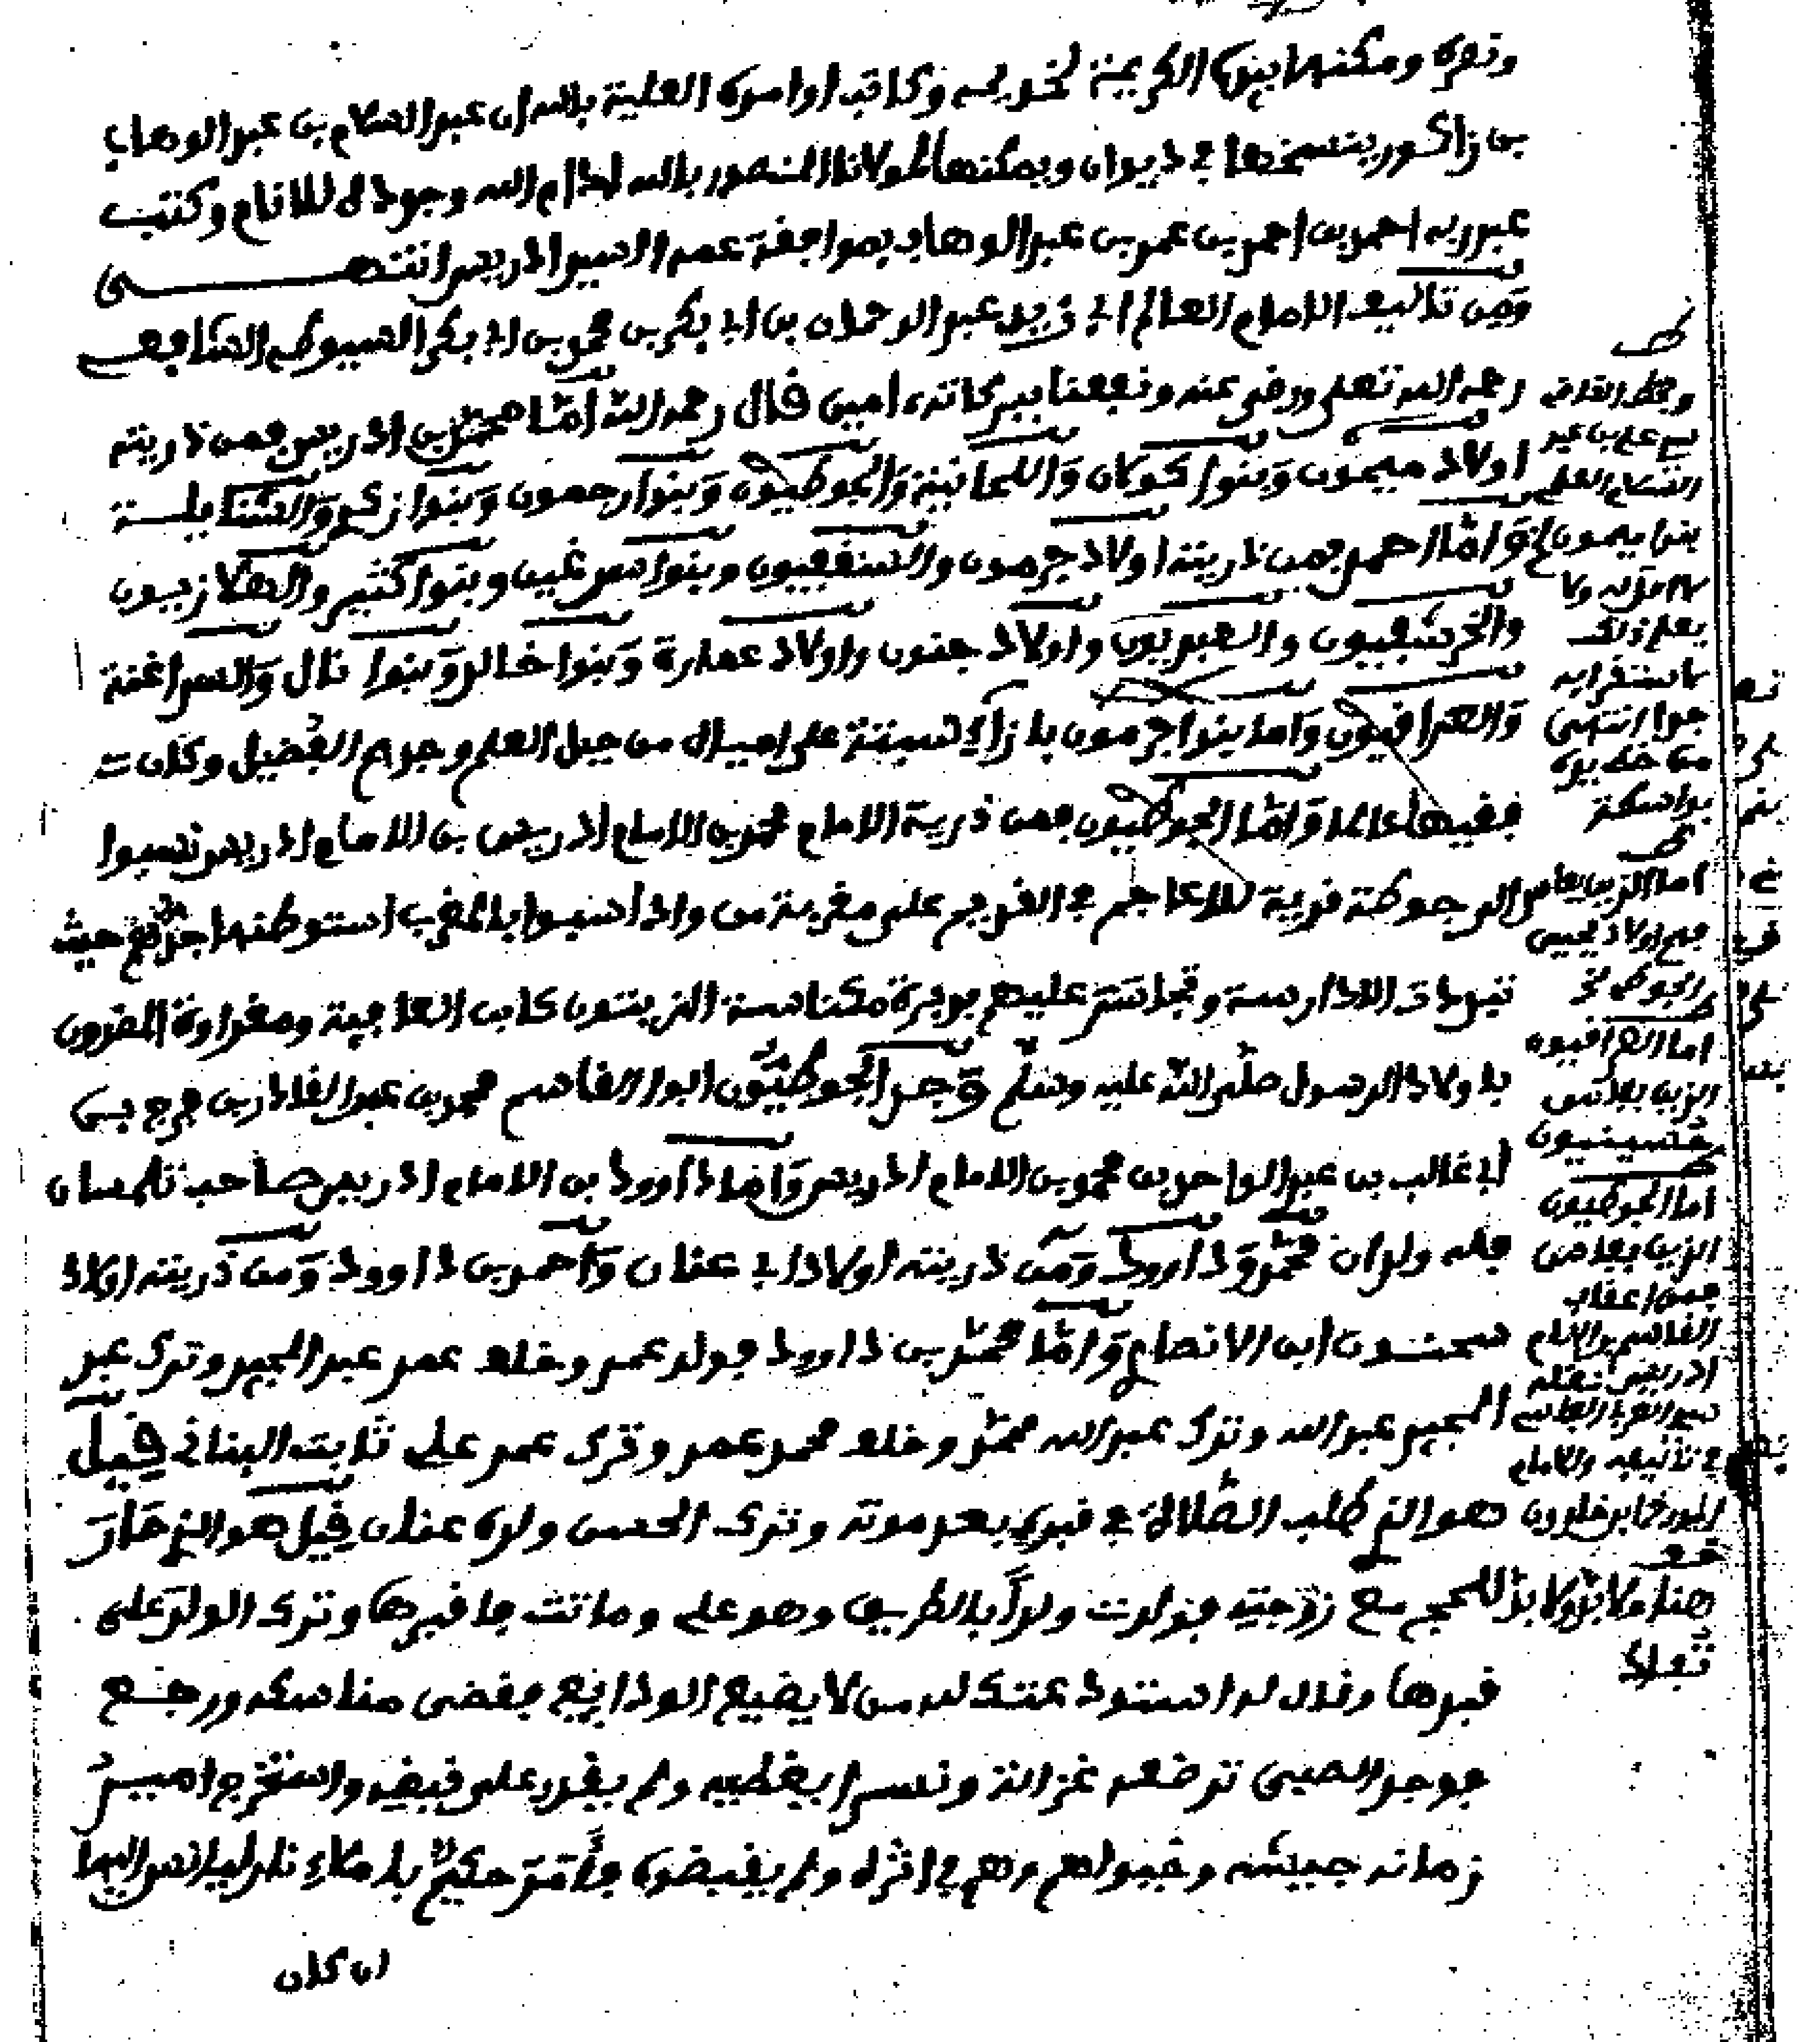 ونصره ومكنها بيده الكريمة لخديمه وكاتب اوامره العلية بالله ان عبد السلام بن عبد الوهاب
بن زاكور ينسخها في ديوان ويمكنها لمولانا المنصور بالله ادام الله وجوده للانام وكتب
عبد ربه احمد بن احمد بن عمر بن عبد الوهاب بموافقة عمه السيد ادريس انتهى
ومن تاليف الامام العالم ابي زيد عبد الرحمان بن ابي بكر بن محمد بن ابي بكر السيوطي الشافعي
رحمه الله تعلى ورضي عنه ونفعنا ببركاته ءامين قال رحمه الله اما محمد بن ادريس فمن ذريته
اولاد ميمون وبنوا كوكان واللحيانية والجوطيون وبنوا رحمون وبنوا زكري والشبابلسة
واما احمد فمن ذريته اولاد جرمون والسنفييون وبنوا سرغين وبنوا كثير والهلازبيون
والخرشفييون والصبريون واولاد جنون واولاد عمارة وبنوا خالد وبنوا نال والسراغنة
والعراقيون واما بنوا جرمون بازاي نسبة على اميال من جبل العلم وجدهم الفضيل وكان
فقيها عالما واما الجوطيون فمن ذرية الامام محمد بن الامام ادريس بن الامام ادريس نسبوا
الى جوطة قرية للاعاجم في القديم على مقربة من واد اسبوا بالمغرب استوطنها جدهم حيث
تبددت الادارسة وتجاسر عليهم بربرة مكناسة الزيتون كابن العافية ومغراوة المقرون
باولاد الرسول صلى الله عليه وسلم وجد الجوطيون ابوا القاسم محمد بن عبد القادر بن فرج بن
ابي غالب بن عبد الواحد بن محمد بن الامام ادريس واما داوود بن الامام ادريس صاحب تلمسان
فله ولدان محمد وداوود ومن ذريته اولاد ابي عنان واحمد بن داوود ومن ذريته اولاد
سحنون ابن الانصام واما محمد بن داوود فولد عمر وخلف عمر عبد المجيد وترك عبد
المجيد عبد الله وترك عبد الله محمد وخلف محمد عمر وترك عمر علي ثابت البناني قيل
هو الذي طلب الصلاة في قبره بعد موته وترك الحسن ولده عنان قيل هو الذي حار
للحج مع زوجته فولدت ولدا بالطريق وهو علي وماتت فاقبرها وترك الولد على
قبرها وقال له استودعتك لمن لا يضيع الودايع فقضى مناسكه ورجع
فوجد الصبي ترضعه غزالة ونسرا يغطيه ولم يقدر على قبضه واستخرج امير
زمانه جيشه وقبواهم وهم في اثره ولم يقبضوه فامر حكيم بامكاء نار ليانس اليها
ان كان
وبخط القاضي
سيدي علي بن عبد
السلام العلمي
بني ميمون
يعلم ذلك
بالاستقراء به
انتهى
من خط يده
بواسطة
اما الذين بفاس
فهم اولاد يحيى
الجوطي
اما العراقيون
الذين بفاس
فحسينيون
اما الجوطيون
الذين بفاس
فمن اعقاب
القاسم بن الامام
ادريس نقله
سيدي العربي الفاسي
في تاليفه والامام
المؤرخ ابن خلدون